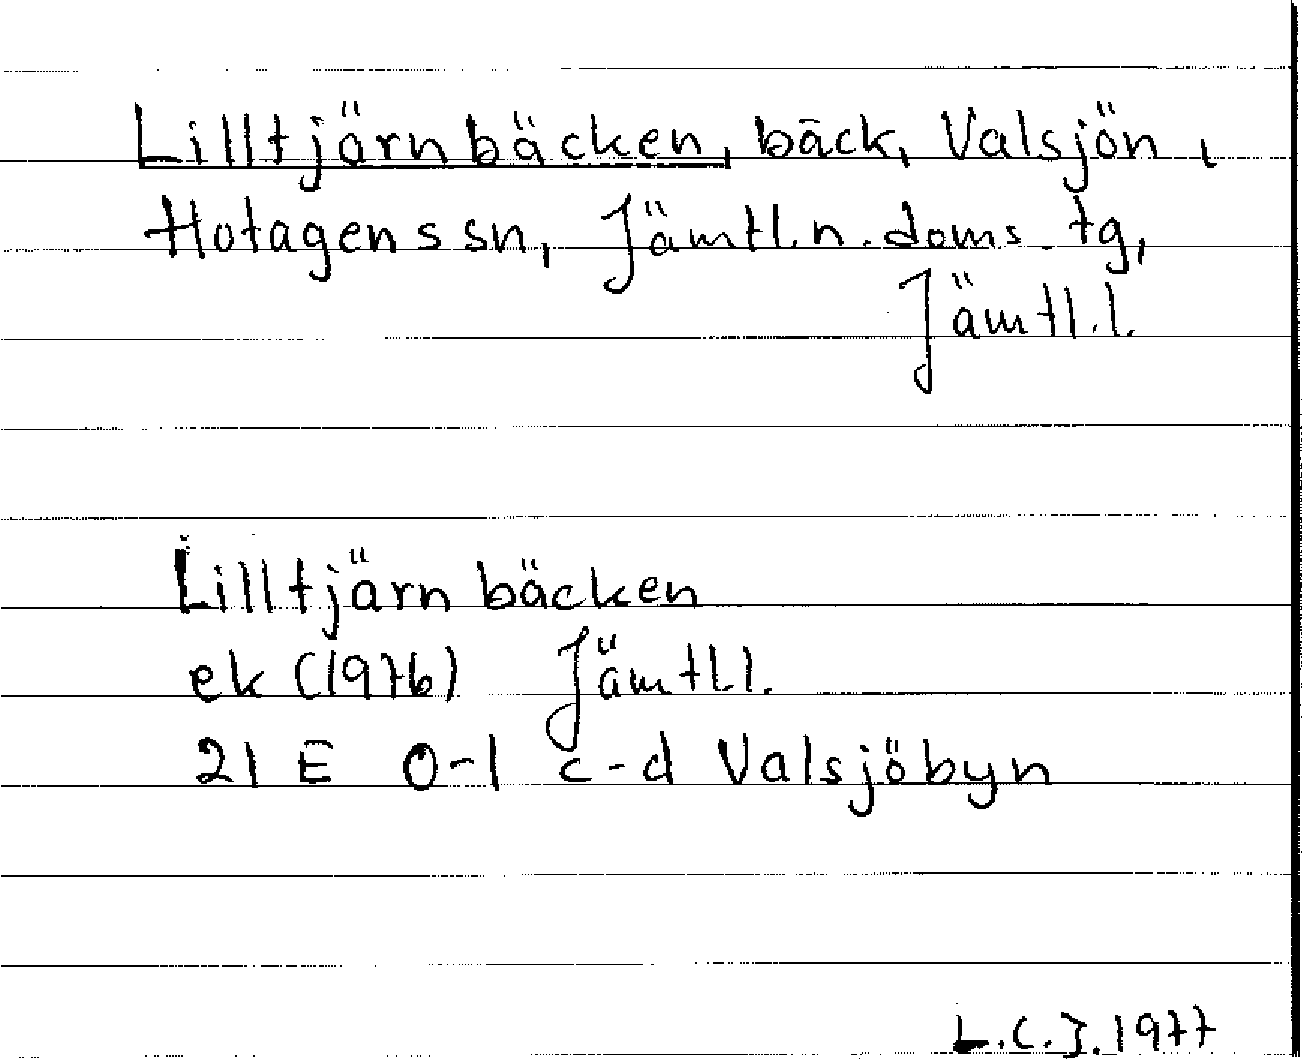 Lilltjärnbäcken, bäck, Valsjön,
Hotagens sn, Jämtl. n. doms. tg,
Jämtl.l.
Lilltjärnbäcken
ek (1976) Jämtl.l.
21 E 0-1 c-d Valsjöbyn
L.C.J. 1977